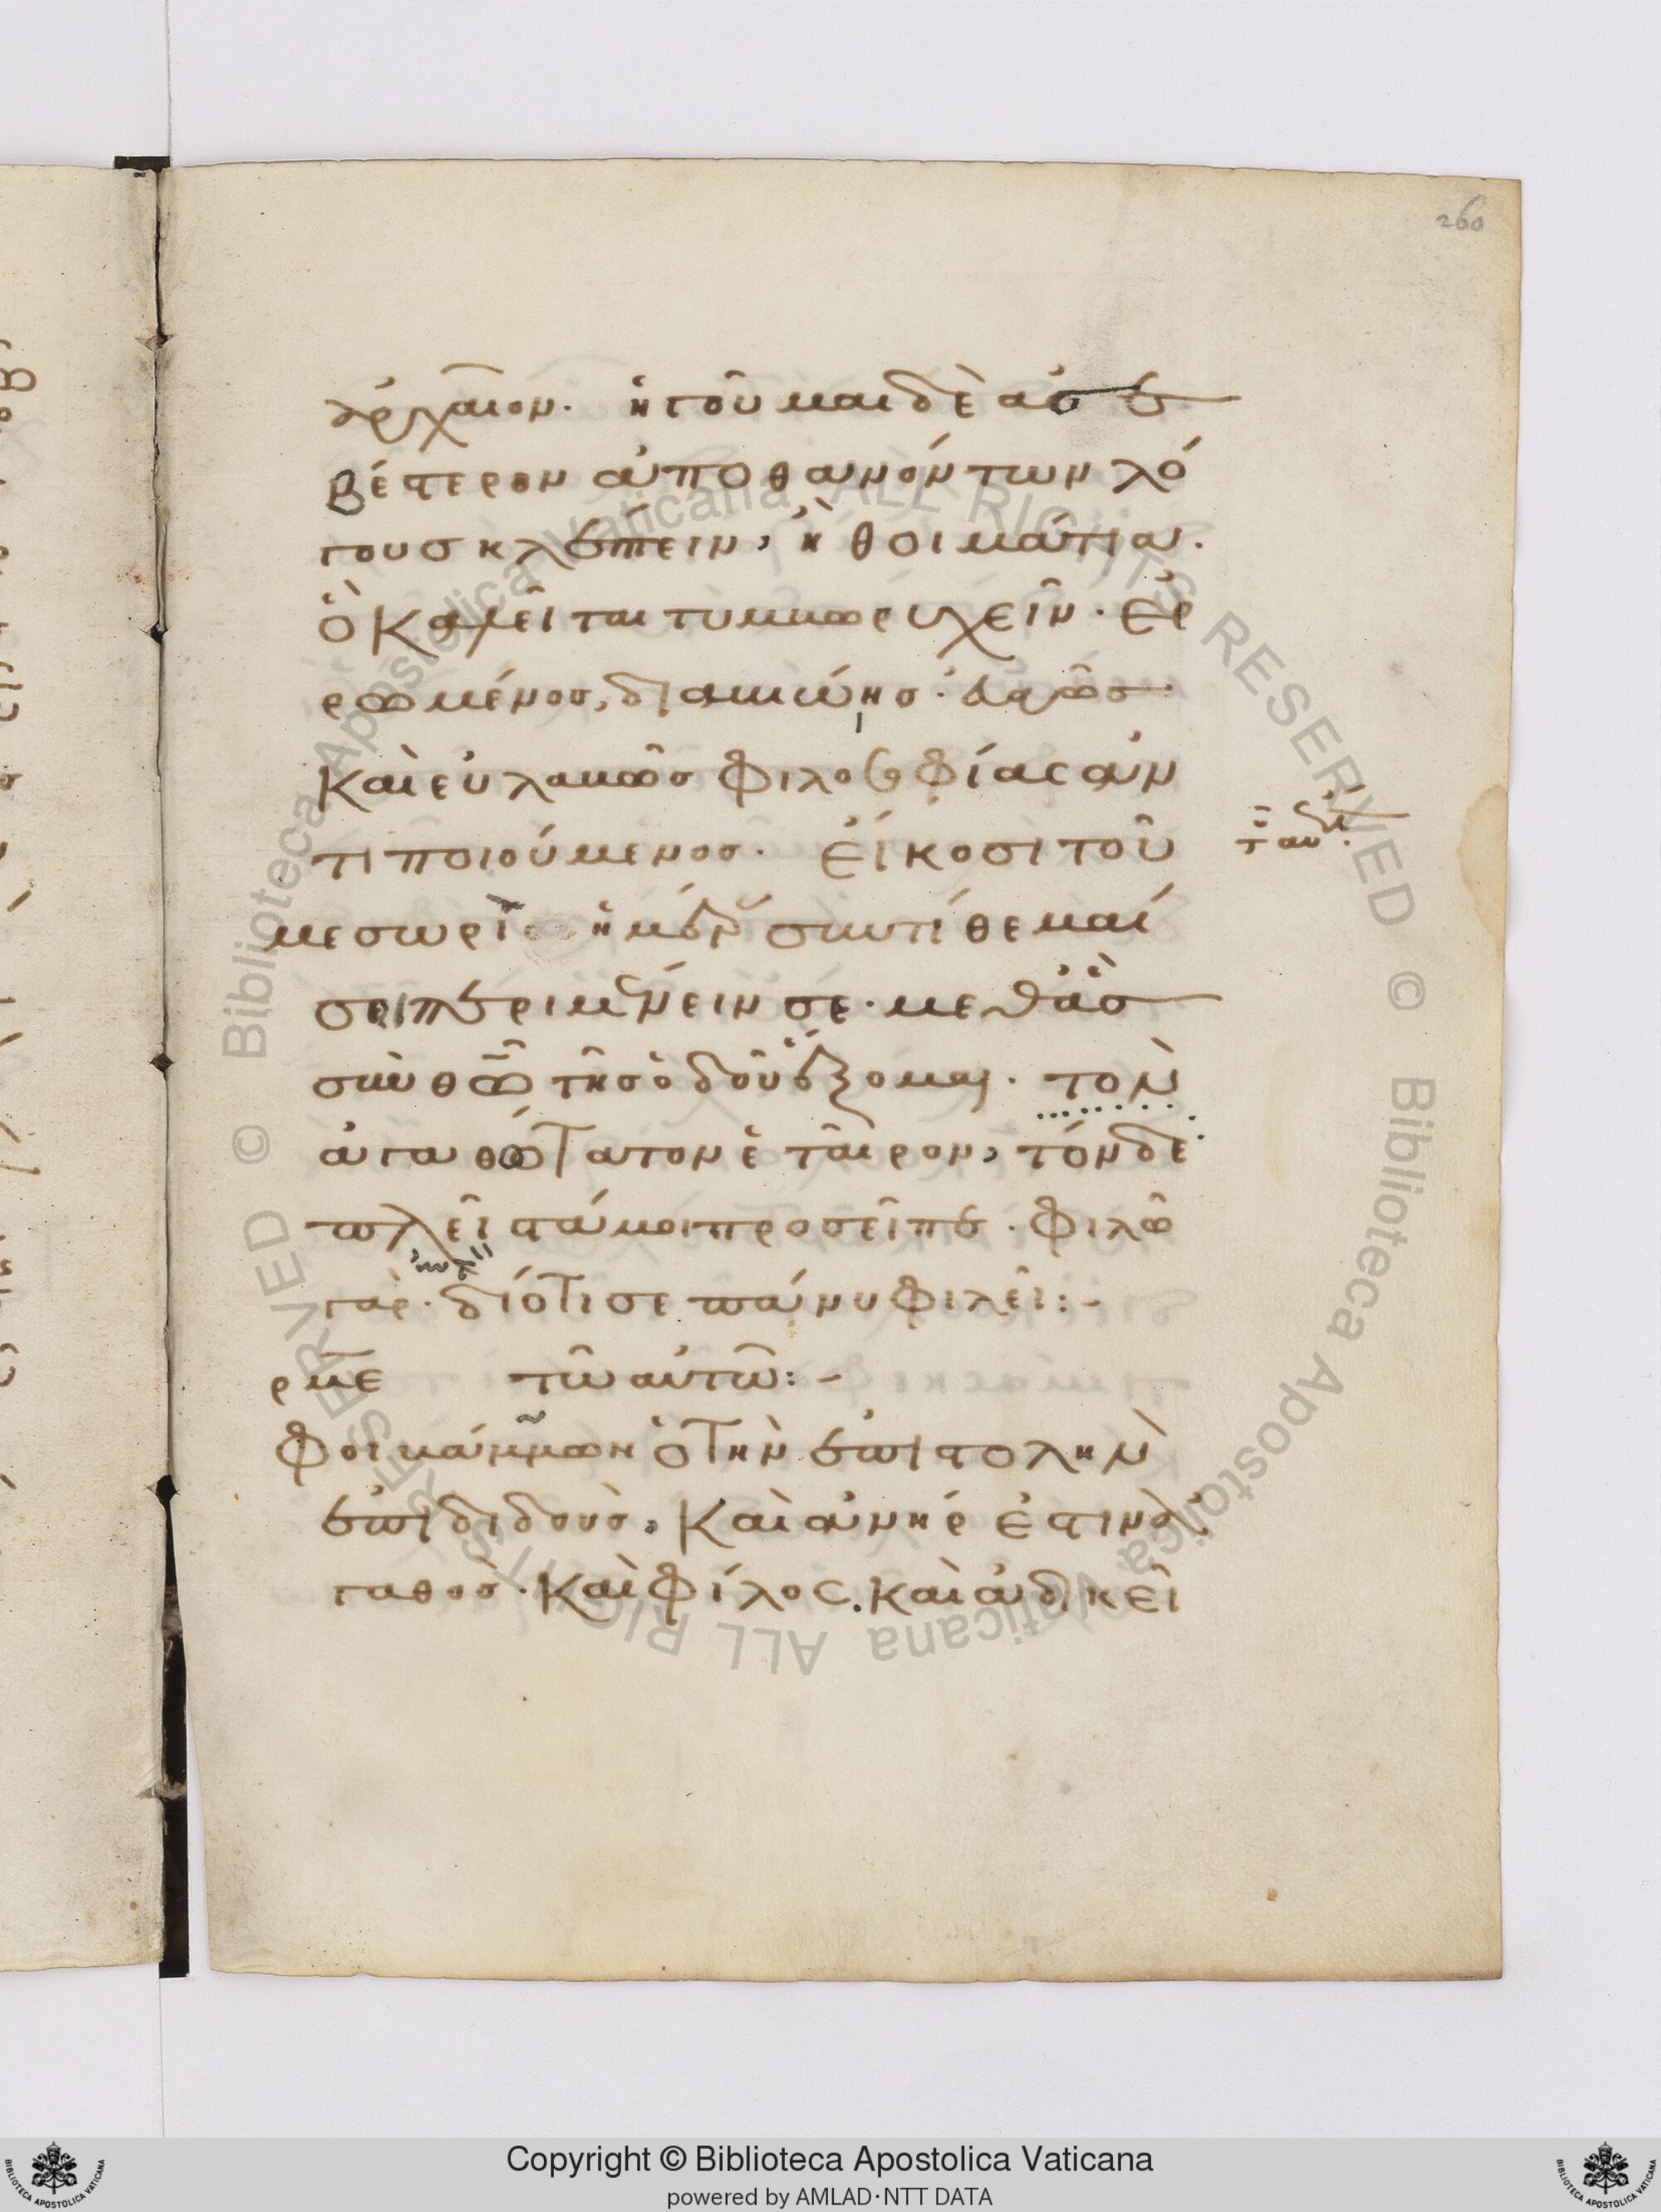 260
ἀρχαῖον. ἡγοῦμαι δὲ ἀσε
βέστερον ἀποθανόντων λό
γους κλέπτειν, ἢ θοἰμάτια.
ὃ καλεῖται τυμβωρυχεῖν. ἐρ
ρωμένος, διαβιώης. ἁδρῶς
καὶ εὐλαβῶς φιλοσοφίας ἀν
τιποιούμενος. εἰκοστὴ τοῦ
μεσωρὶ ἡμέραν συντίθεμαί
σοι περιμένειν σε. μεθ' ἃς
σὺν θεῷ τῆς ὁδοῦ ἕξομαι. τὸν
ἀγαθώτατον ἑταῖρον, τόνδε
πλεῖστά μοι πρόσειπε. φιλῶ
γὰρ. διότι σε πάνυ φιλεῖ:-
ρμε τῶ αὐτῶ:-
Φοιβάμμων ὁ τὴν ἐπιστολὴν
ἐπιδιδοὺς, καὶ ἀνήρ ἐστιν ἀ
γαθος. καὶ φίλος. καὶ ἀδικεῖ
Copyright © Biblioteca Apostolica Vaticana
powered by AMLAD·NTT DATA